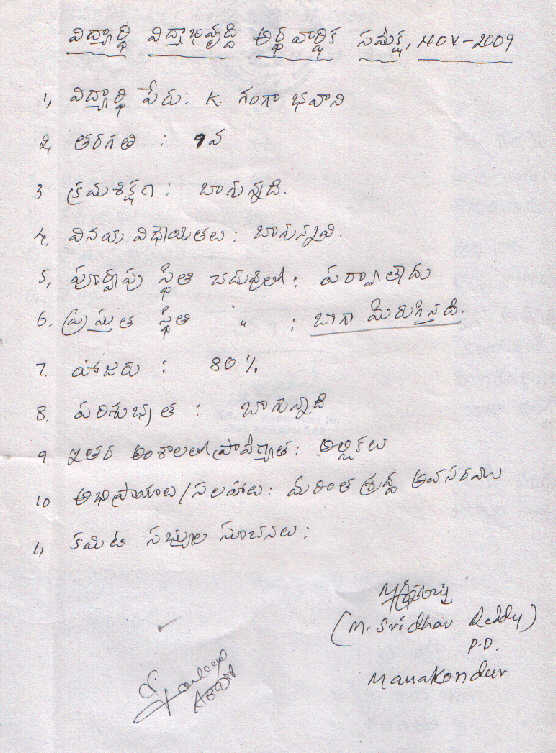 విద్యార్థి విద్యాభివృద్ధి అర్థ వార్షిక సమీక్ష, NOV-2009
1, విద్యార్థి పేరు: K. గంగా భవాని
2, తరగతి : 9వ
3 క్రమశిక్షణ : బాగున్నది.
4. వినయ విధేయతలు : బాగున్నవి.
5, పూర్వపు స్థితి చదువులో : పర్వాలేదు
6. ప్రస్తుత స్థితి " : బాగా మెరుగైనది.
7. హాజరు : 80%
8. పరిశుభ్రత : బాగున్నది
9 ఇతర అంశాలలో ప్రావీణ్యత :
10 అభిప్రాయాలు/సలహాలు : మరింత శ్రద్ధ అవసరము
11 కమిటి సభ్యుల సూచనలు :
(M. Sridhar Reddy)
P.D.
Manakondur